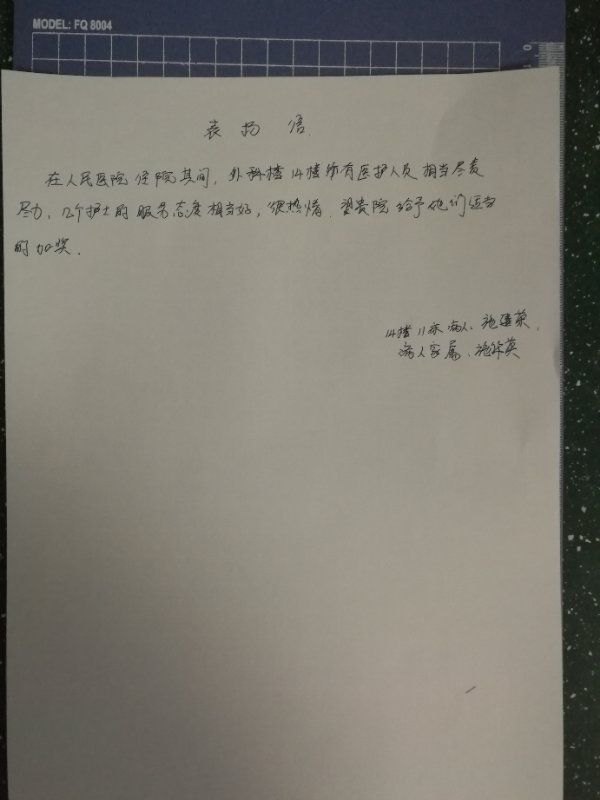 MODEL: FQ 8004
表扬信.
在人民医院住院其间,外科楼14楼所有医护人员相当尽责
尽力,几个护士的服务态度相当好,很热情.望贵院给予她们适当
的加奖.
14楼11床病人.施建荣.
病人家属、施